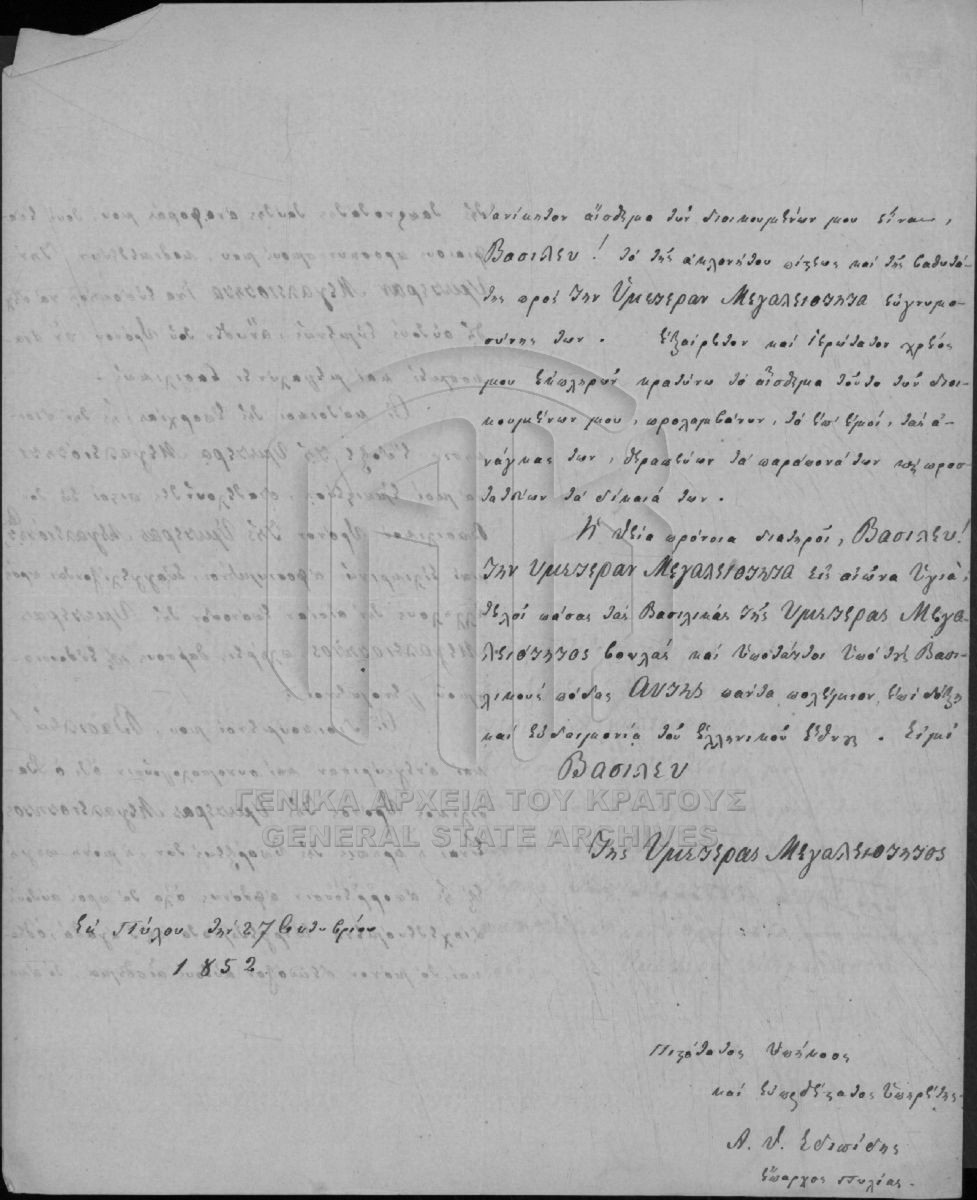 ανίκητον αἴσθημα τῶν διοικουμένων μου εἶναι,
Βασιλεῦ! τὸ τῆς ἀκλονήτου πίστεως καὶ τῆς βαθυτά-
της πρὸς Τὴν Ὑμετέραν Μεγαλειότητα εὐγνωμο-
σύνης των. Ἐξαίρετον καὶ ἱερώτατον χρέος
μου ἐκπληρῶν κρατύνω τὸ αἴσθημα τοῦτο τῶν διοι-
κουμένων μου, προλαμβάνων, τὸ ἐπ' ἐμοὶ, τὰς ἀ-
νάγκας των, θεραπεύων τὰ παράπονά των καὶ προσ-
τατεύων τὰ δίκαιά των.
Ἡ θεία πρόνοια διατηροῖ, Βασιλεῦ!
Τὴν Ὑμετέραν Μεγαλειότητα εἰς αἰῶνα ὑγιᾶ,
τελοῖ πάσας τὰς Βασιλικὰς Τῆς Ὑμετέρας Μεγα-
λειότητος βουλὰς καὶ ὑποτάττοι ὑπὸ τοὺς Βασι-
λικοὺς πόδας Αὐτῆς πάντα πολέμιον, ἐπὶ δόξῃ
καὶ εὐδαιμονίᾳ τοῦ Ἑλληνικοῦ ἔθνους. Εἰμὶ
Βασιλεῦ
ΓΕΝΙΚΑ ΑΡΧΕΙΑ ΤΟΥ ΚΡΑΤΟΥΣ
GENERAL STATE ARCHIVES
Τῆς Ὑμετέρας Μεγαλειότητος
Ἐν Πύλῳ τὴν 27 Ὀκτωβρίου
1852
Πιστότατος ὑπήκοος
καὶ εὐπειθέστατος ὑπηρέτης
Α. Ψ.
Ἔπαρχος Πυλίας.